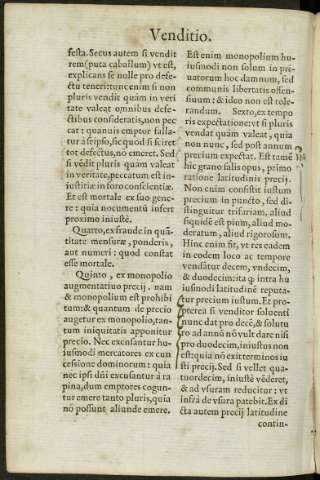 Venditio.
festa. Secus autem si vendit
rem (puta caballum) vt est,
explicans se nolle pro defe-
ctu teneri: tunc enim si non
pluris vendit quàm in veri
tate valeat omnibus defe-
ctibus consideratis, non pec
cat: quanuis emptor falla-
tur à seipso, sic quod si sciret
tot defectus, nō emeret. Sed
si vēdit pluris quàm valeat
in veritate, peccatum est in-
iustitiæ in foro conscientiæ.
Et est mortale ex suo gene-
re: quia nocumentū infert
proximo iniustè.
Quarto, ex fraude in quā-
titate mensuræ, ponderis,
aut numeri: quod constat
esse mortale.
Quinto, ex monopolio
augmentatiuo precij. nam
& monopolium est prohibi
tum: & quantum de precio
augetur ex monopolio, tan-
tum iniquitatis apponitur
precio. Nec excusantur hu-
iusmodi mercatores ex cun
cessione dominorum: quia
nec ipsi dñi excusantur à ra
pina, dum emptores cogun-
tur emere tanto pluris, quia
nō possunt aliunde emere.
Est enim monopolium hu-
iusmodi non solum in pri-
uatorum hoc damnum, sed
communis libertatis offen-
siuum: & ideo non est tole-
randum. Sexto, ex tempo
ris expectatione: vt si pluris
vendat quàm valeat, quia
non nunc, sed post annum
precium expectat. Est tamē
hic grano salis opus, primo
ratione latitudinis precij.
Non enim consistit iustum
precium in puncto, sed di-
stinguitur trifariam, aliud
siquidē est pium, aliud mo-
deratum, aliud rigorosum.
Hinc enim fit, vt res eadem
in eodem loco ac tempore
vendātur decem, vndecim,
& duodecim: ita q̃ intra hu
iusmodi latitudinē reputa-
tur precium iustum. Et pro-
pterea si venditor soluenti
nunc dat pro decē, & solutu
ro ad annū nō vult dare nisi
pro duodecim, iniustus non
est: quia nō exit terminos iu
sti precij. Sed si vellet qua-
tuordecim, iniustè vēderet,
& ad vsuram reducitur: vt
infrà de vsura patebit. Ex di
cta autem precij latitudine
contin-